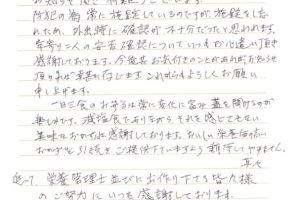 防犯の為 常に施錠しているのですが、施錠を忘
れたため、外出時に確認が不十分だったと思われます。
年寄り2人の安否確認についてもいつも心遣い頂き
感謝しております。今後共 お気付きのことが有れば お知らせ
頂ければ 幸甚に存じます。これからもよろしくお願い
申し上げます。
一日乙食のお弁当は常に変化に富み 蓋を開けるのが
楽しみです。減塩食でありながら、それを感じさせない
美味なおかずに感謝しております。
おかずを 引続き ご提供下さいますよう 期待してやみません。
草々
追って 栄養管理士並びにお作り下さる皆々様
のご努力に いつも 感謝しております。